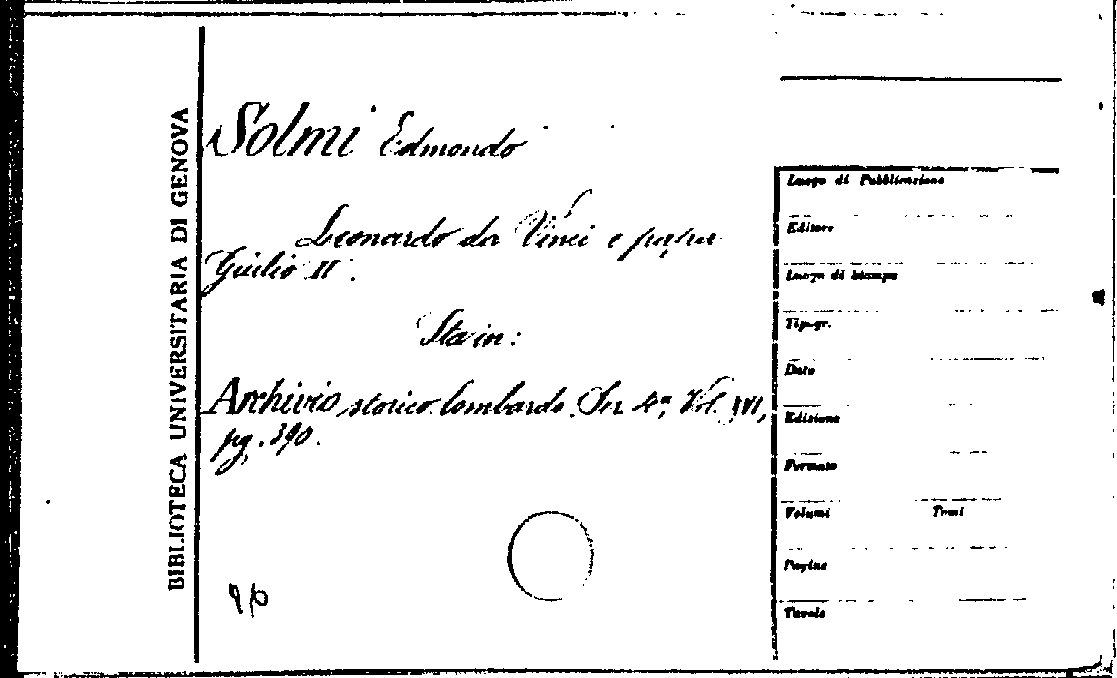 BIBLIOTECA UNIVERSITARIA DI GENOVA
Solmi Edmondo
Leonardo da Vinci e papa
Giulio II.
Sta in:
Archivio storico lombardo. Ser. 4ª, Vol. XVI,
pg. 390.
Luogo di Pubblicazione
Editore
Luogo di stampa
Tipogr.
Data
Edizione
Formato
Volumi Tomi
Pagine
Tavole